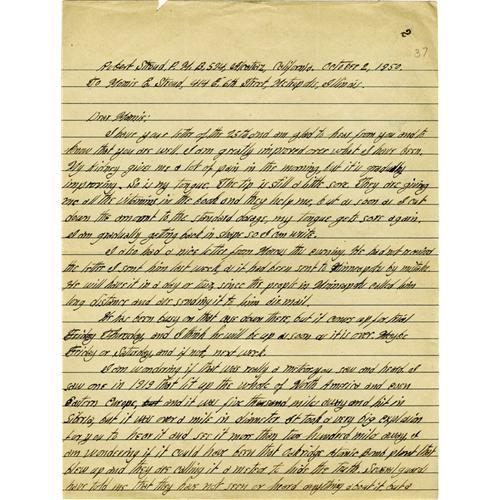 2
37
Robert Stroud, P.M.B. 594, Alcatraz, California. October 2, 1950.
To Mamie E. Stroud, 414 E. 6th Street, Metropolis, Illinois.
Dear Mamie:
I have your letter of the 25th and am glad to hear from you and to
know that you are well. I am greatly improved over what I have been.
My kidney gives me a lot of pain in the morning, but it is gradually
improving. So is my tongue. The tip is still a little sore. They are giving
me all the vitamins in the book and they help me, but as soon as I cut
down the amount to the standard dosage, my tongue gets sore again.
I am gradually getting back in shape so I can write.
I also had a nice letter from Marcus this evening. He had not received
the letter I sent him last week, as it had been sent to Minneapolis by mistake.
He will have it in a day or two, since the people in Minneapolis called him
long distance and are sending it to him air-mail.
He has been busy on that case down there, but it comes up for trial
Friday Thursday and I think he will be up as soon as it is over. Maybe
Friday or Saturday, and if not, next week.
I am wondering if that was really a meteor you saw and heard. I
saw one in 1913 that lit up the whole of North America and even
Eastern Europe, but and it was five thousand miles away and hit in
Siberia, but it was over a mile in diameter. It took a very big explosion
for you to hear it and see it more than two hundred miles away. I
am wondering if it could have been that Oakridge Atomic Bomb plant that
blew up and they are calling it a meteor to hide the truth. Several guards
have told me that they has not seen or heard anything about it, but a